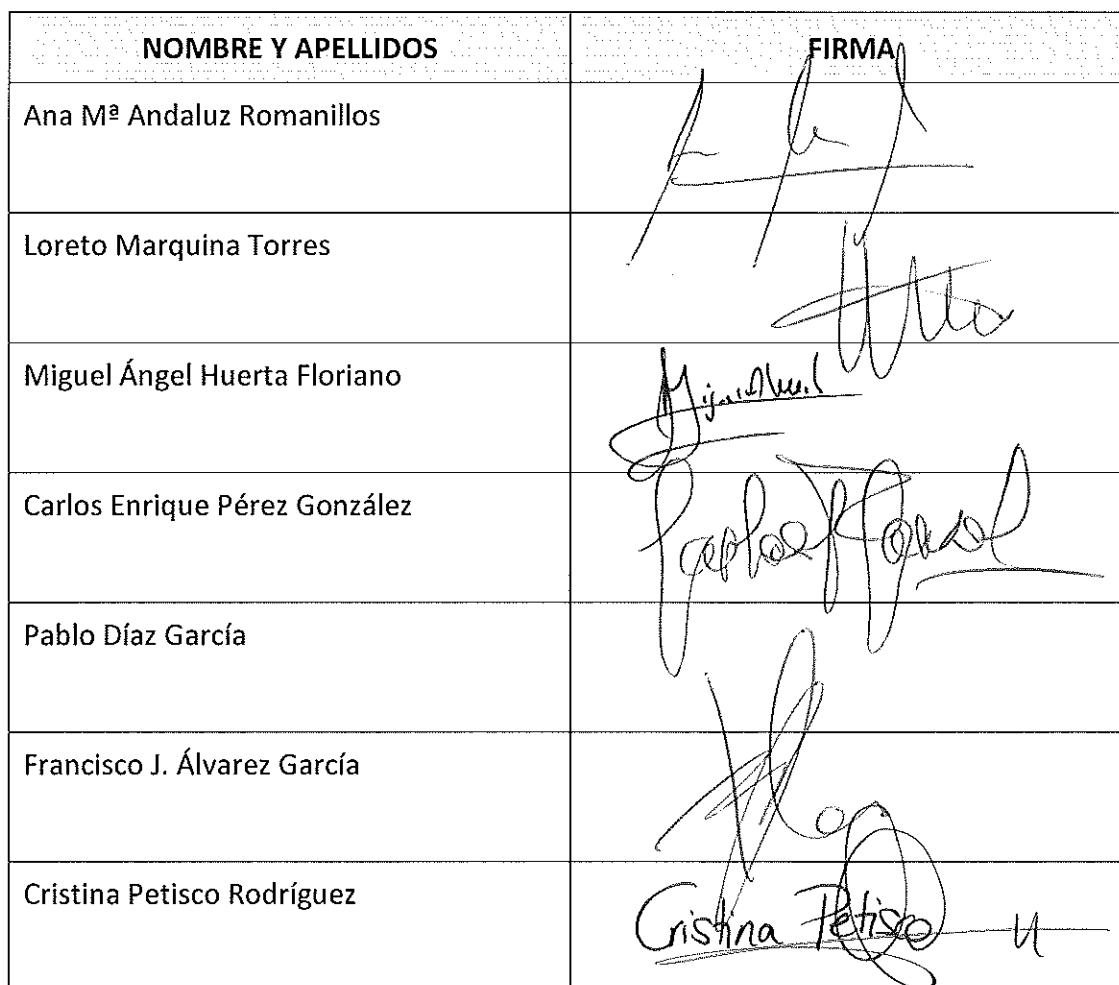 NOMBRE Y APELLIDOS FIRMA
Ana Mª Andaluz Romanillos
Loreto Marquina Torres
Miguel Ángel Huerta Floriano
Carlos Enrique Pérez González
Pablo Díaz García
Francisco J. Álvarez García
Cristina Petisco Rodríguez Cristina Petisco